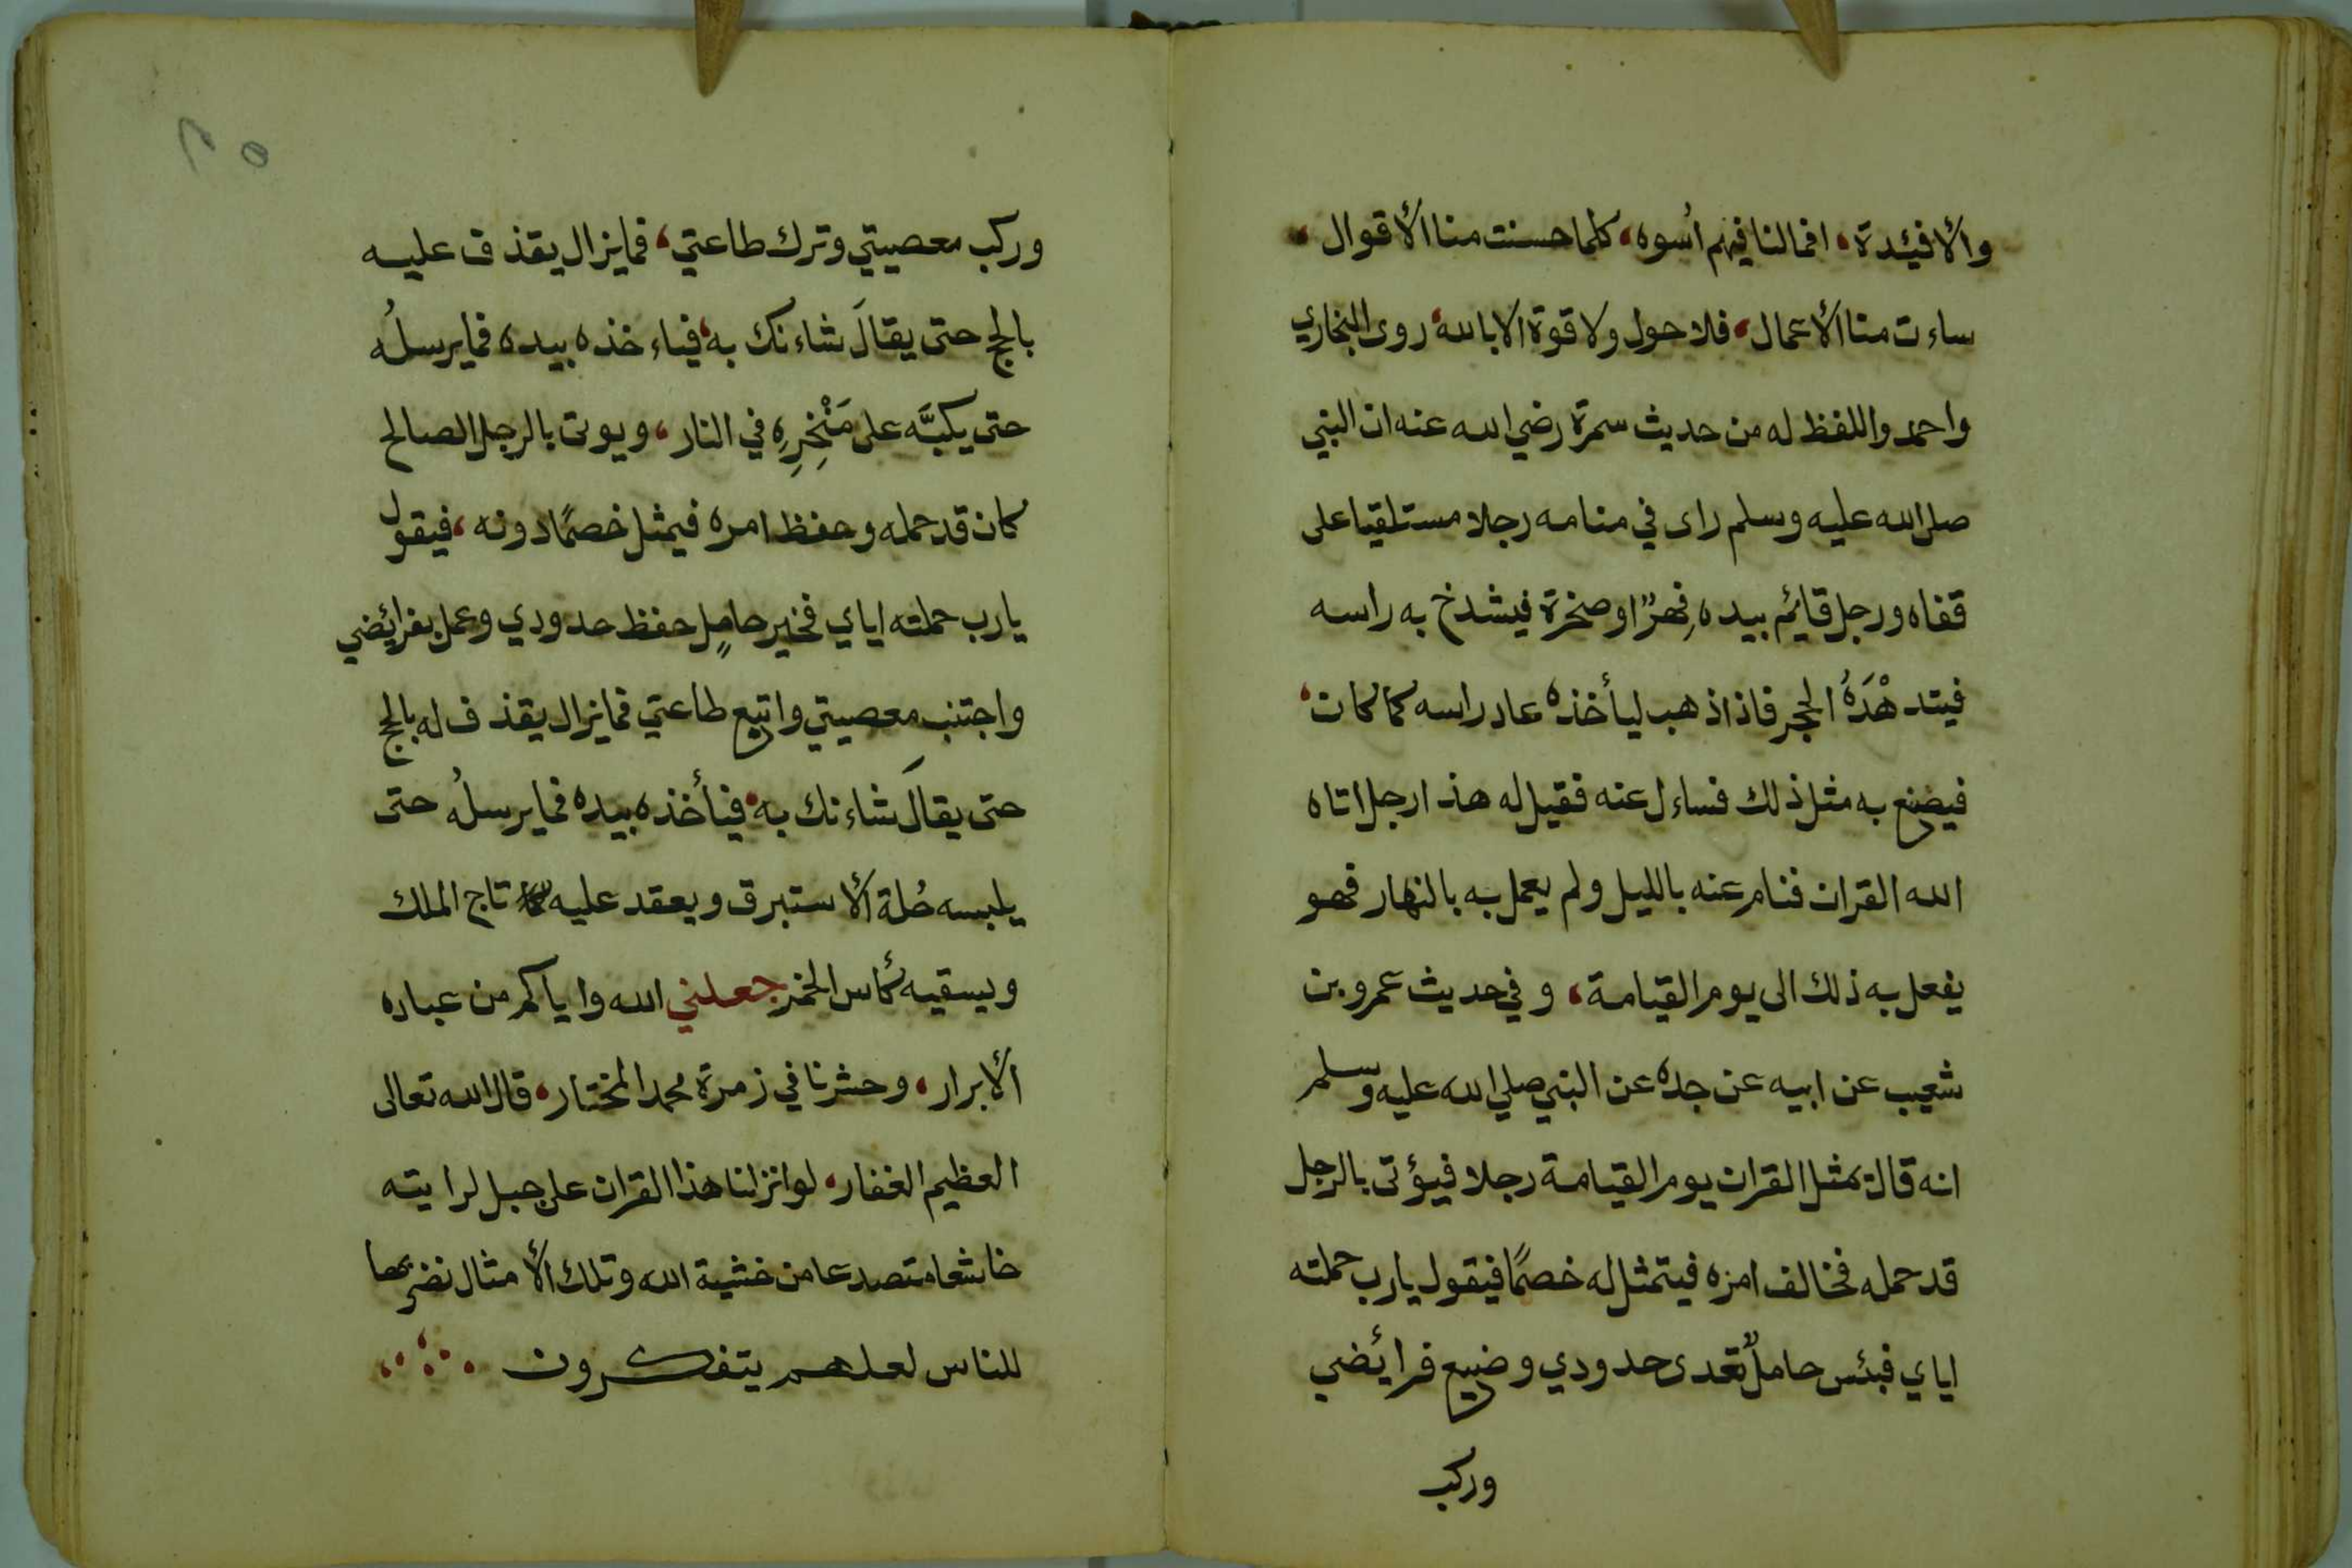 والأفيئدة، افمالنا فيهم أسوه، كلما حسنت منا الأقوال،
ساءت منا الأعمال، فلا حول ولا قوة الا بالله، روى البخاري
واحمد واللفظ له من حديث سمرة رضي الله عنه ان النبي
صلى الله عليه وسلم راى في منامه رجلا مستلقيا على
قفاه ورجل قايئم بيده فِهرٌ او صخرة فيشدخ به راسه
فيتدهْدَهُ الحجر فاذا ذهب ليأخذه عاد راسه كما كان،
فيضنع به مثل ذلك فساءل عنه فقيل له هذا رجل اتاه
الله القران فنام عنه بالليل ولم يعمل به بالنهار فهو
يفعل به ذلك الى يوم القيامة، وفي حديث عمرو بن
شعيب عن ابيه عن جده عن النبي صلي الله عليه وسلم
انه قال يمثل القران يوم القيامة رجلا فيؤتى بالرجل
قد حمله فخالف امره فيتمثل له خصمًا فيقول يارب حملته
اياي فبئس حاملٌ تعدى حدودي وضيع فرائضي
وركب
٢٥
وركب معصيتي وترك طاعتي، فمايزال يقذف عليه
بالحج حتى يقالَ شاءنك به، فياءخذه بيده فمايرسلُه
حتى يكبَّه على مَنْخِرِهِ في النار، ويوتى بالرجل الصالح
كان قد حمله وحفظ امره فيمثل خصمًا دونه، فيقول
يارب حملته اياي فخير حاملٍ حفظ حدودي وعمل بفرايئضي
واجتنب معصيتي واتبع طاعتي فمايزال يقذف له بالحج
حتى يقالَ شاءنك به، فيأخذه بيده فمايرسلُه حتى
يلبسه حُلة الأستبرق ويعقد عليه تاج الملك
ويسقيه كأس الخمر جعلني الله واياكم من عباده
الأبرار، وحشرنا في زمرة محمد المختار، قال الله تعالى
العظيم الغفار، لو انزلنا هذا القران على جبل لرايته
خاشعا متصدعا من خشية الله وتلك الأمثال نضربها
للناس لعلهم يتفكرون